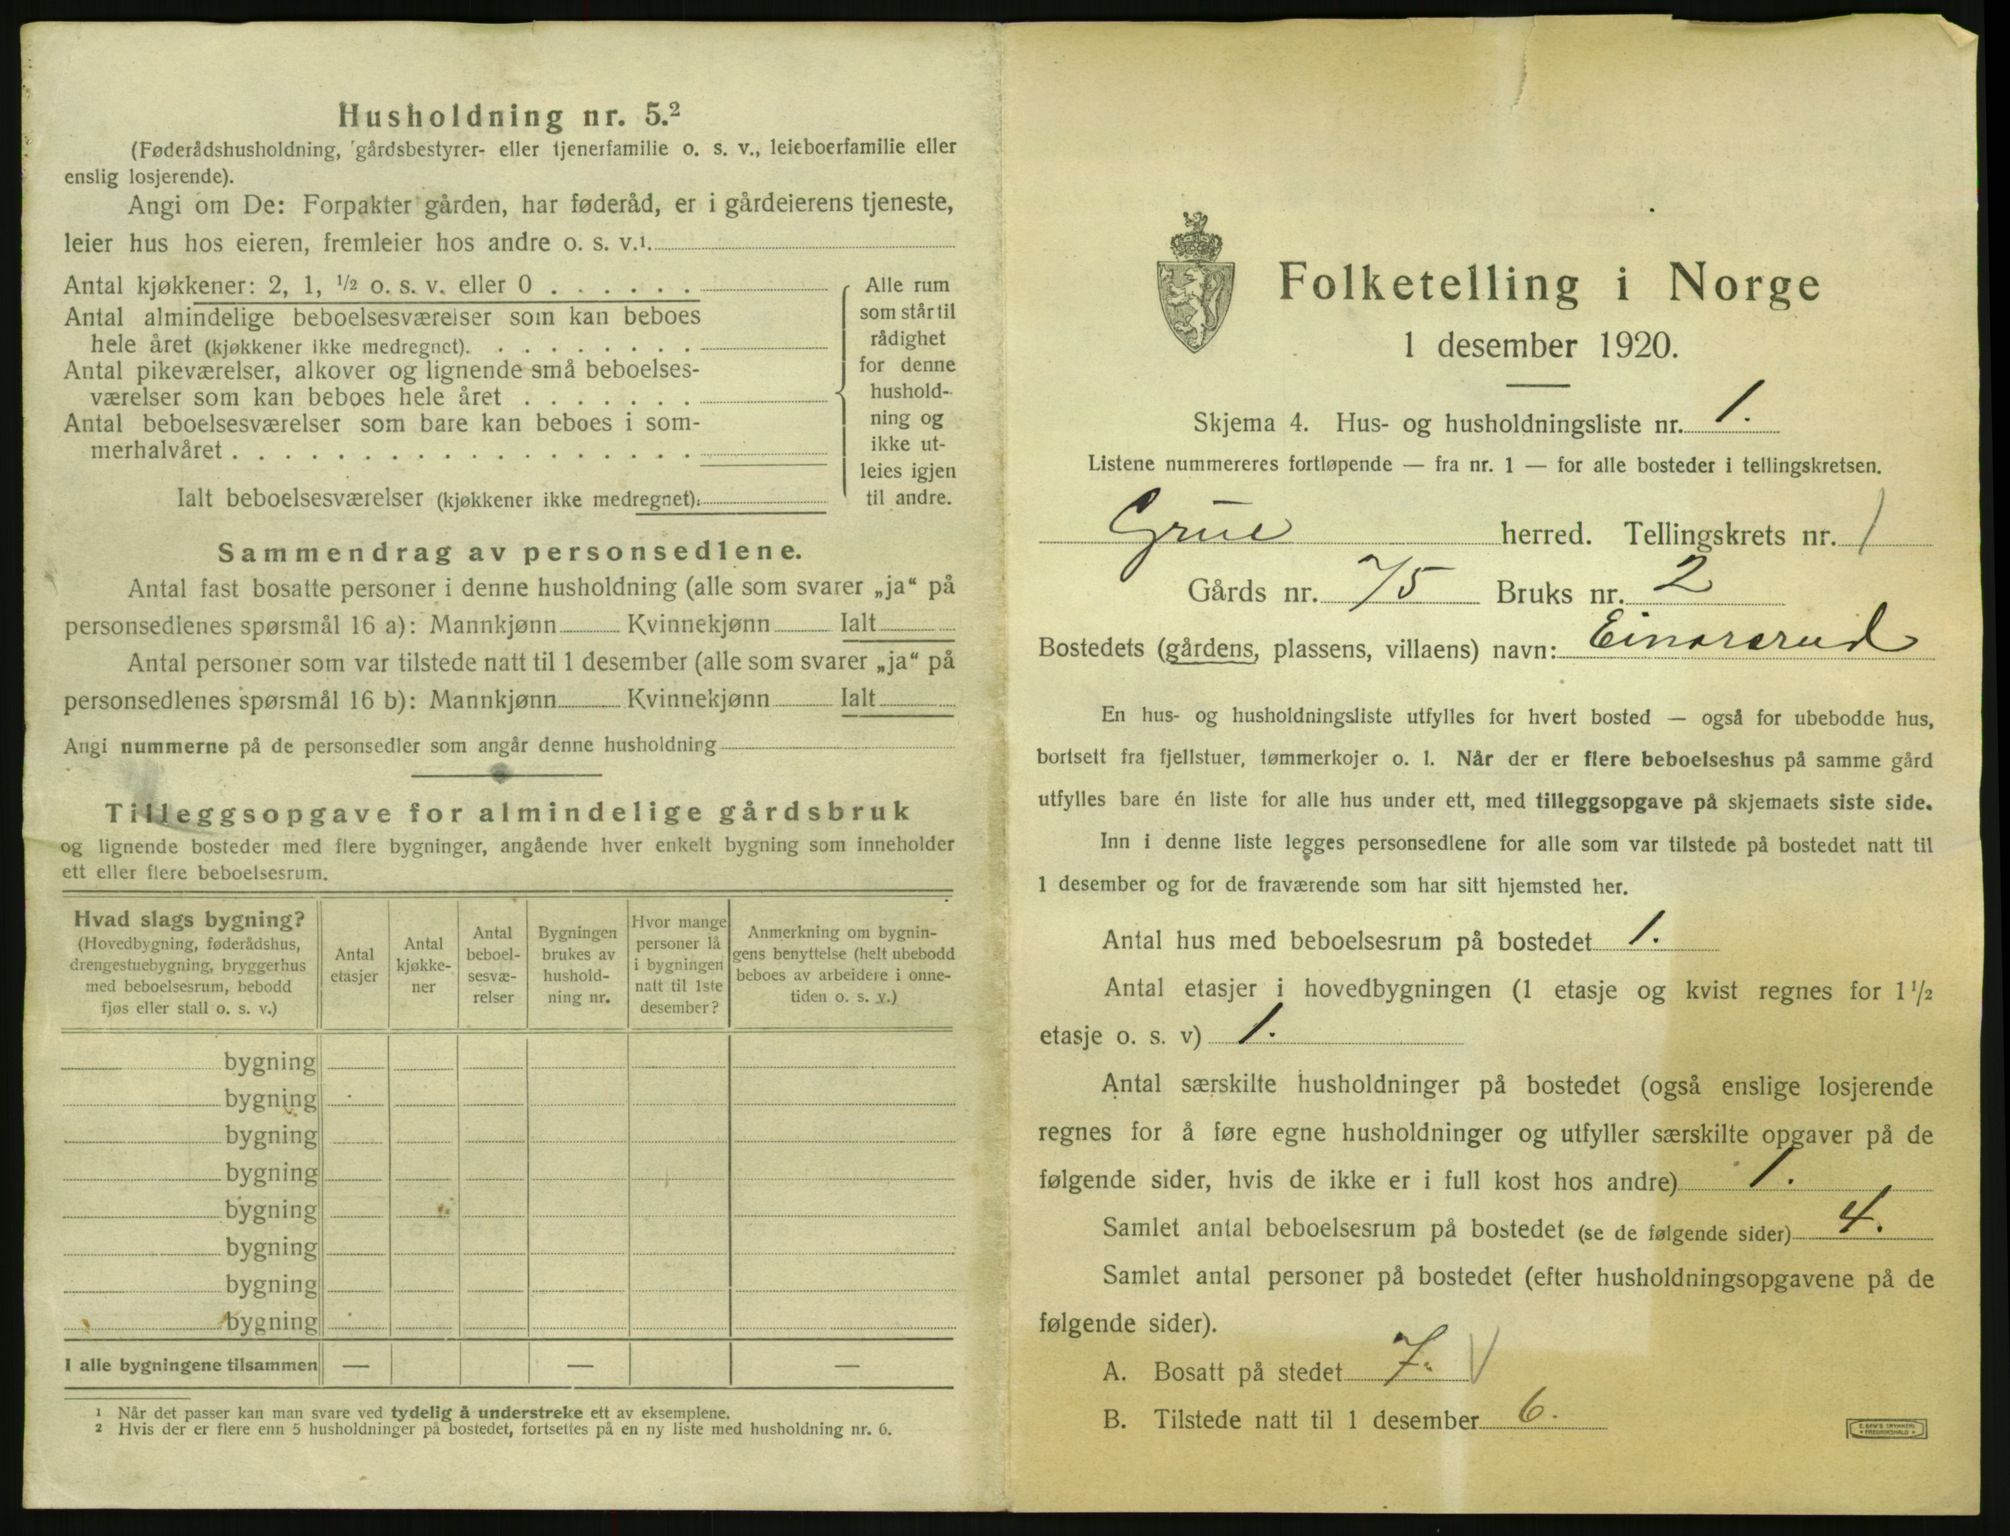 Husholdning nr. 5.²
(Føderådshusholdning, gårdsbestyrer- eller tjenerfamilie o. s. v., leieboerfamilie eller
enslig losjerende).
Angi om De: Forpakter gården, har føderåd, er i gårdeierens tjeneste,
leier hus hos eieren, fremleier hos andre o. s. v.¹
Antal kjøkkener: 2, 1, ½ o. s. v. eller 0 . . . . . .
Antal almindelige beboelsesværelser som kan beboes
hele året (kjøkkener ikke medregnet). . . . . . . . .
Antal pikeværelser, alkover og lignende små beboelses-
værelser som kan beboes hele året . . . . . . .
Antal beboelsesværelser som bare kan beboes i som-
merhalvåret . . . . . . . . . . . . . . . . . .
Ialt beboelsesværelser (kjøkkener ikke medregnet):
Alle rum
som står til
rådighet
for denne
hushold-
ning og
ikke ut-
leies igjen
til andre.
Sammendrag av personsedlene.
Antal fast bosatte personer i denne husholdning (alle som svarer „ja“ på
personsedlenes spørsmål 16 a): Mannkjønn Kvinnekjønn Ialt
Antal personer som var tilstede natt til 1 desember (alle som svarer „ja“ på
personsedlenes spørsmål 16 b): Mannkjønn Kvinnekjønn Ialt
Angi nummerne på de personsedler som angår denne husholdning
Tilleggsopgave for almindelige gårdsbruk
og lignende bosteder med flere bygninger, angående hver enkelt bygning som inneholder
ett eller flere beboelsesrum.
Hvad slags bygning?
(Hovedbygning, føderådshus,
drengestuebygning, bryggerhus
med beboelsesrum, bebodd
fjøs eller stall o. s. v.)
Antal
etasjer
Antal
kjøkke-
ner
Antal
beboel-
sesvæ-
relser
Bygningen
brukes av
hushold-
ning nr.
Hvor mange
personer lå
i bygningen
natt til 1ste
desember?
Anmerkning om bygnin-
gens benyttelse (helt ubebodd
beboes av arbeidere i onne-
tiden o. s. v.)
bygning
bygning
bygning
bygning
bygning
bygning
bygning
bygning
I alle bygningene tilsammen — — —
¹ Når det passer kan man svare ved tydelig å understreke ett av eksemplene.
² Hvis der er flere enn 5 husholdninger på bostedet, fortsettes på en ny liste med husholdning nr. 6.
Folketelling i Norge
1 desember 1920.
Skjema 4. Hus- og husholdningsliste nr. 1.
Listene nummereres fortløpende — fra nr. 1 — for alle bosteder i tellingskretsen.
Grue herred. Tellingskrets nr. 1
Gårds nr. 75 Bruks nr. 2
Bostedets (gårdens, plassens, villaens) navn: Einarsrud
En hus- og husholdningsliste utfylles for hvert bosted — også for ubebodde hus,
bortsett fra fjellstuer, tømmerkojer o. l. Når der er flere beboelseshus på samme gård
utfylles bare én liste for alle hus under ett, med tilleggsopgave på skjemaets siste side.
Inn i denne liste legges personsedlene for alle som var tilstede på bostedet natt til
1 desember og for de fraværende som har sitt hjemsted her.
Antal hus med beboelsesrum på bostedet 1.
Antal etasjer i hovedbygningen (1 etasje og kvist regnes for 1½
etasje o. s. v) 1.
Antal særskilte husholdninger på bostedet (også enslige losjerende
regnes for å føre egne husholdninger og utfyller særskilte opgaver på de
følgende sider, hvis de ikke er i full kost hos andre) 1.
Samlet antal beboelsesrum på bostedet (se de følgende sider) 4.
Samlet antal personer på bostedet (efter husholdningsopgavene på de
følgende sider).
A. Bosatt på stedet 7. V
B. Tilstede natt til 1 desember 6.